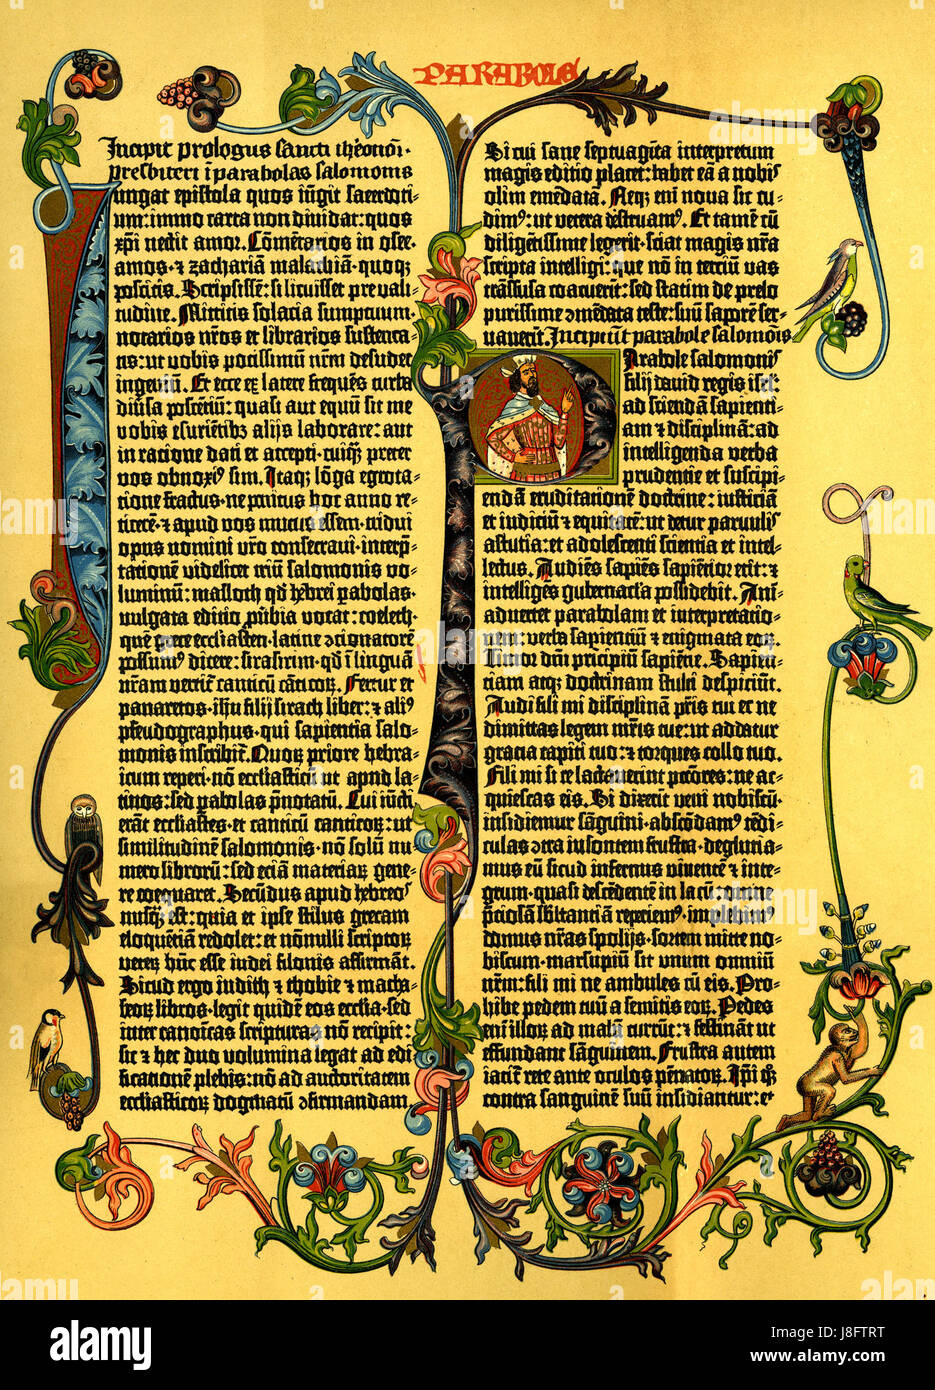 PARABOLE
Incipit prologus sancti iheronimi
presbiteri ī parabolas salomonis
Iungat epistola quos iūgit sacerdoti-
um: immo carta non diuidat: quos
xp̄i nectit amor. Cōmētarios in osee.
amos. ⁊ zachariā malachiā. quoqꝫ
poscitis. Scripsissē: si licuisset pre vali-
tudine. Mittitis solacia sumptuum.
notarios nr̄os et librarios sustenta-
tis: ut vobis potissimū nr̄m desudet
ingeniū. Et ecce ex latere frequēs turba
diūsa poscētiū: quasi aut equū sit me
vobis esurietibꝫ alijs laborare: aut
in ratione dati et accepti. cuiqꝫ preter
vos obnoxi⁹ sim. Itaqꝫ lōga egrotatione
fractus. ne penitus hoc anno re-
ticerē. ⁊ apud vos mutus essem. tridui
opus nomini vr̄o consecraui. interp̄-
tationē videlicet triū salomonis vo-
luminū: masloth qd̄ hebrei pabolas.
vulgata editio ꝓūbia vocat: coeleth.
quē grece ecclīasten. latine ↄcionatorē
possum⁹ dicere: sirasirim. qd̄ ī linguā
nr̄am vertit̄ canticū cāticoꝝ. Fertur et
panaretos. ihu filij sirach liber: ⁊ ali⁹
pseudographus. qui sapientia salo-
monis inscribit̄. Quoꝝ priore hebra-
icum reperi. nō ecclīasticū ut apud la-
tinos: sed pabolas p̄notatū. Cui iūcti
erāt ecclīastes. et canticū canticoꝝ: ut
similitudinē salomonis. nō solū nu-
mero libroꝝ: sed eciā materiaꝝ gene-
re coequaret. Secūdus apud hebreos
nusqꝫ est: quia et ipse stilus grecam
eloquētiā redolet: et nōnulli scriptoꝝ
veteꝝ hūc esse iudei filonis affirmāt.
Sicud ergo iudith ⁊ thobie ⁊ macha-
beoꝝ libros. legit quidē eos ecclīa. sed
inter canonicas scripturas nō recipit:
sic ⁊ hec duo volumina legat ad edi-
ficationē plebis: nō ad auctoritatem
ecclīasticoꝝ dogmatū ↄfirmandam.
Si cui sane septuagīta interpretum
magis editio placet: habet eā a nobis
olim emēdatā. Neqꝫ eni nova sic cu-
dim⁹: ut vetera destruam⁹. Et tamē cū
diligētissime legerit. sciat magis nr̄a
scripta intelligi: que nō in terciū vas
trāsfusa coacuerit: sed statim de prelo
purissime ↄmēdata teste: suū saporē ser-
vauerit. Incipiūt parabole salomōis
Parabole salomonis
filij dauid regis isrl̄:
ad sciendā sapienti-
am ⁊ disciplinā: ad
intelligenda verba
prudentie et suscipi-
endā eruditationē doctrine: iusticiā
et iudiciū ⁊ equitatē: ut detur paruulis
astutia: et adolescenti scientia et intel-
lectus. Audiēs sapiēs sapiētior erit: ⁊
intelligēs gubernacl̄a possidebit. Ani-
aduertet parabolam et interpretatio-
nem: verba sapientiū ⁊ enigmata eoꝝ.
Timor dn̄i principiū sapiētie. Sapien-
tiam atqꝫ doctrinam stulti despiciūt.
Audi fili mi disciplinā pr̄is tui et ne
dimittas legem mr̄is tue: ut addatur
gratia capiti tuo: ⁊ torques collo tuo.
Fili mi si te lactauerint pctōres: ne ac-
quiescas eis. Si dixerit veni nobiscū.
insidiemur sāguini. abscōdam⁹ tēdi-
culas ↄtra insontem frustra. deglutia-
mus eū sicud infernus viuentē ⁊ inte-
grum. quasi descēdentē in lacū: omne
p̄ciosā sb̄stantiā repeiem⁹. implebim⁹
domus nr̄as spolijs. sortem mitte no-
biscum. marsupiū sit unum omniū
nr̄m: fili mi ne ambules cū eis. Pro-
hibe pedem tuū a semitis eoꝝ. Pedes
eni illoꝝ ad malū currūt: ⁊ festināt ut
effundant sāguinem. Frustra autem
iacit̄ rete ante oculos pēnatoꝝ. Ipi qꝫ
contra sanguinē suū insidiantur: et